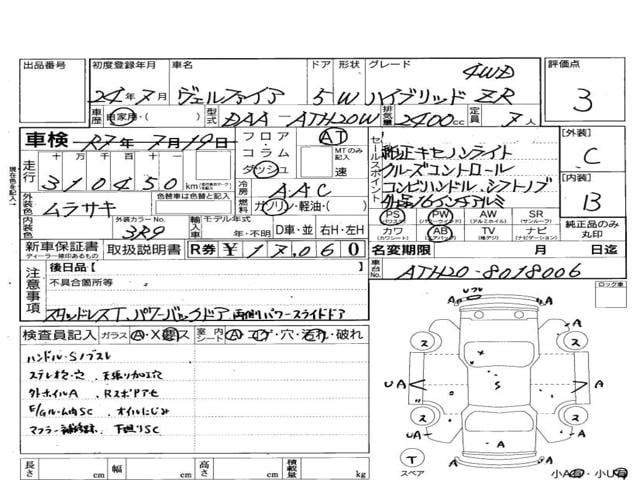 出品番号 初度登録年月 車名 ドア 形状 グレード 評価点
24年7月 ヴェルファイア 5W ハイブリッド ZR 4WD 3
車歴 自家用・( ) 型式 DAA-ATH20W 排気量 2400cc 定員 7人
車検 R7年7月19日 フロア AT 【外装】
走行 十万 万 千 百 十 一 コラム MTのみ記入 純正キセノンライト C
310450km ダッシュ 速 クルーズコントロール 【内装】
セールスポイント コンビハンドル、シフトノブ B
外装色 色替車は色替と記入 冷房 AAC
ムラサキ 燃料 ガソリン・軽油・( ) PS PW AW SR 純正品のみ丸印
内装色 外装カラーNo. 3R9 輸入車 モデル年式 年・不明 D車・並 右H・左H カワ AB TV ナビ
新車保証書 取扱説明書 R券 ¥17,060 名変期限 月 日迄
ディーラー捺印あるもの
車台No. ATH20-8018006
注意事項 後日品【 】
不具合箇所等
スタッドレスT、パワーバックドア 両側パワースライドドア
検査員記入 ガラス A・X・ス 室内シート A・コゲ・穴・汚れ・破れ
ハンドル・Sノブスレ
外ホイルA Rスポアセ
E/Gルーム内SC オイルにじみ
下廻りSC
長さ cm 幅 cm 高さ cm 積載量 kg
ロック車
Uフク
A A
ス ス
UA A S A
ス ス
UA A A
T
スペア 小A有・小U有